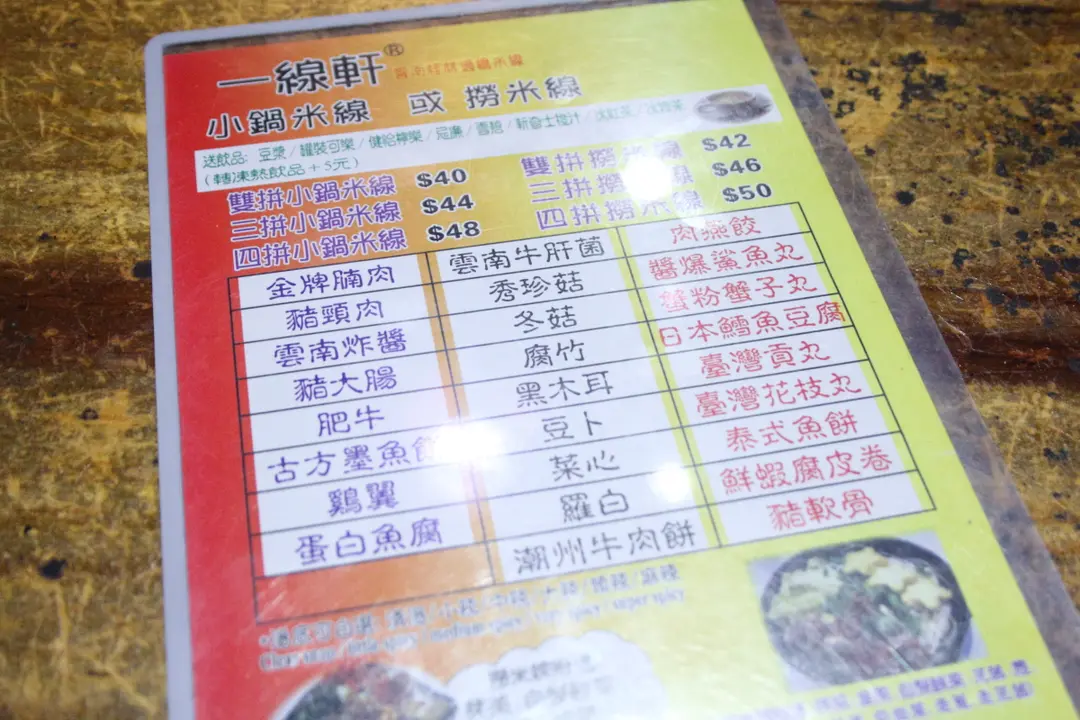 一線軒®
小鍋米線 或 撈米線
送飲品: 豆漿/罐裝可樂/健怡檸樂/忌廉/雪碧/新會土橙汁/凍紅茶/凍綠茶
(轉凍熱飲品+5元)
雙拼小鍋米線 $40
三拼小鍋米線 $44
四拼小鍋米線 $48
雙拼撈米線 $42
三拼撈米線 $46
四拼撈米線 $50
金牌腩肉
豬頸肉
雲南炸醬
豬大腸
肥牛
古方墨魚餅
鷄翼
蛋白魚腐
雲南牛肝菌
秀珍菇
冬菇
腐竹
黑木耳
豆卜
菜心
羅白
潮州牛肉餅
肉燕餃
醬爆鯊魚丸
蟹粉蟹子丸
日本鱈魚豆腐
臺灣貢丸
臺灣花枝丸
泰式魚餅
鮮蝦腐皮卷
豬軟骨
小辣/中辣/大辣
little spicy / medium spicy / very spicy / super spicy